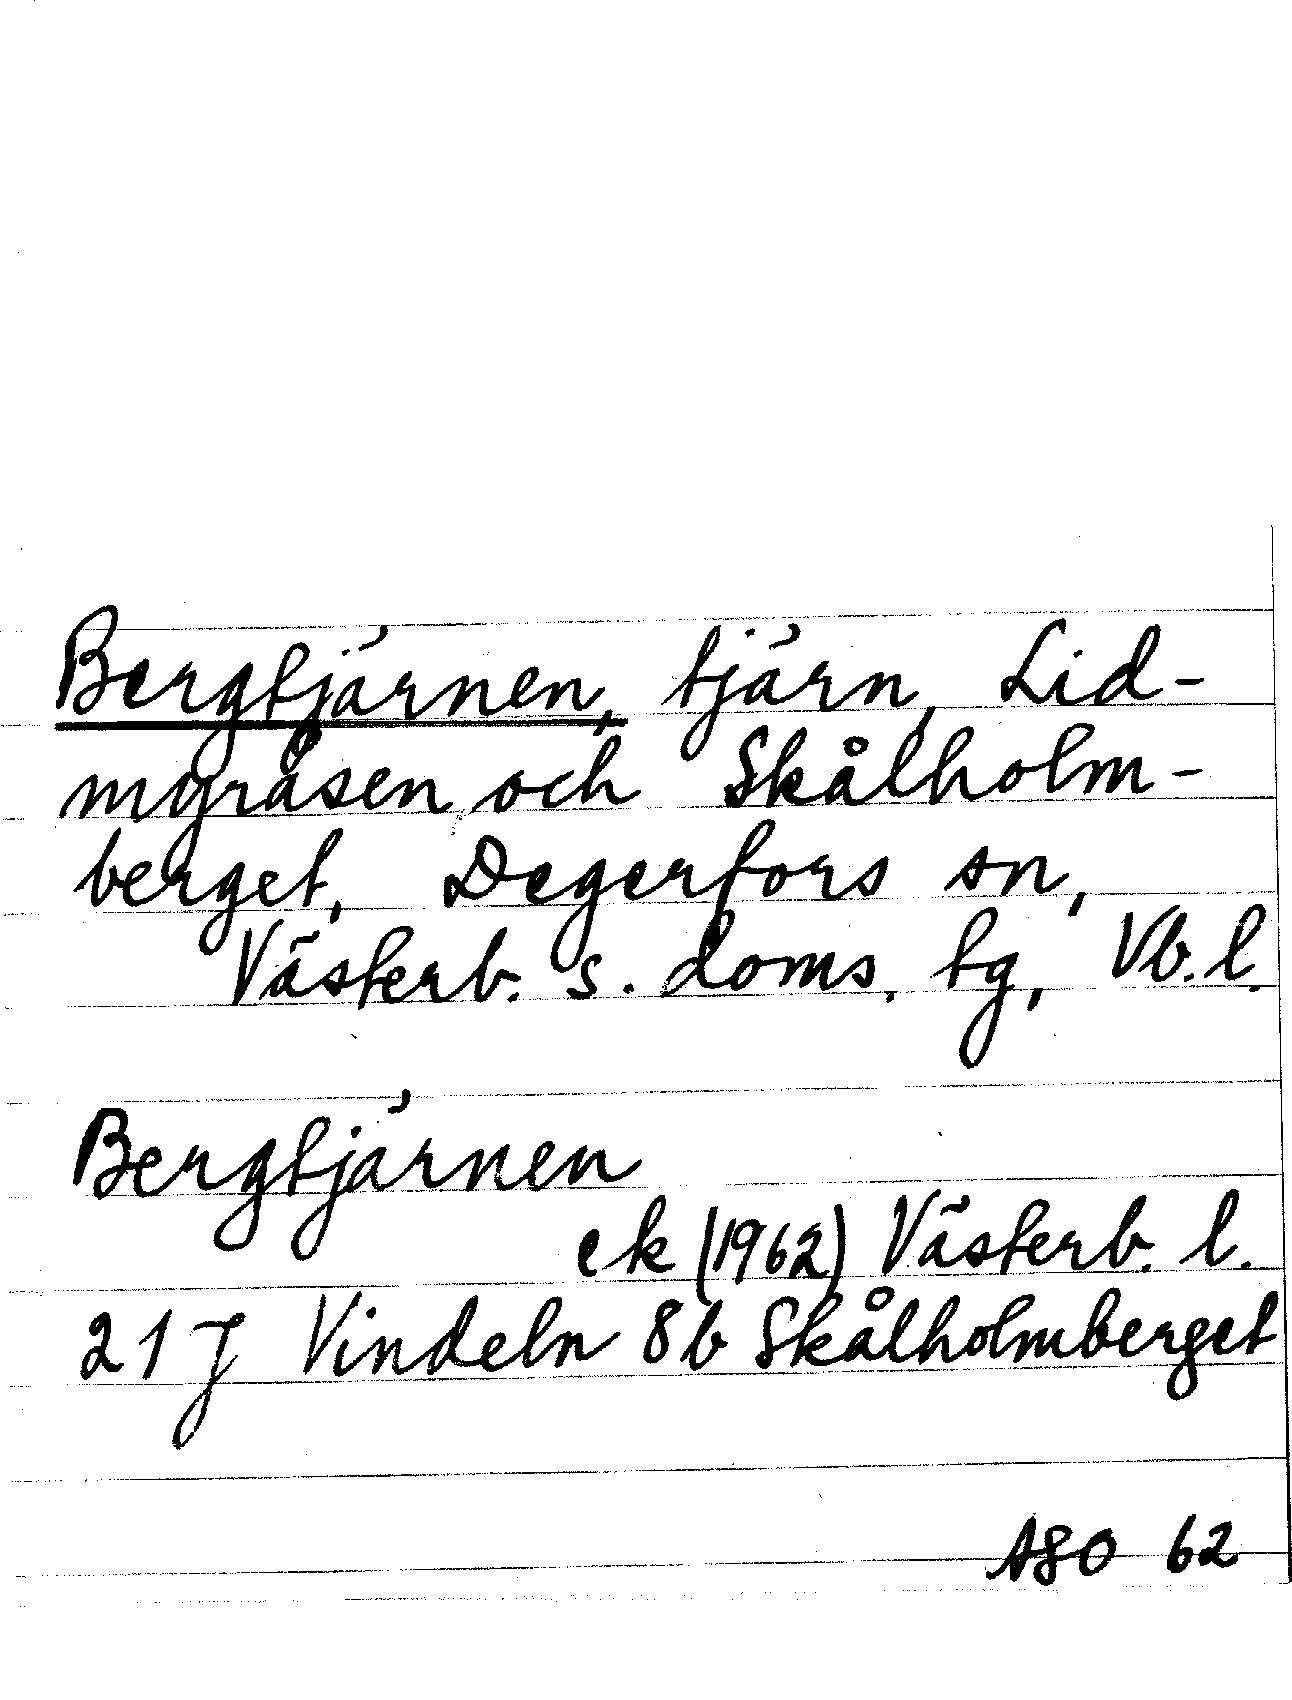 Bergtjärnen, tjärn, Lid-
myråsen och Skålholm-
berget, Degerfors sn,
Västerb. s. doms. tg, Vb. l.
Bergtjärnen
ek (1962) Västerb. l.
21 J Vindeln 8b Skålholmberget
ASO 62